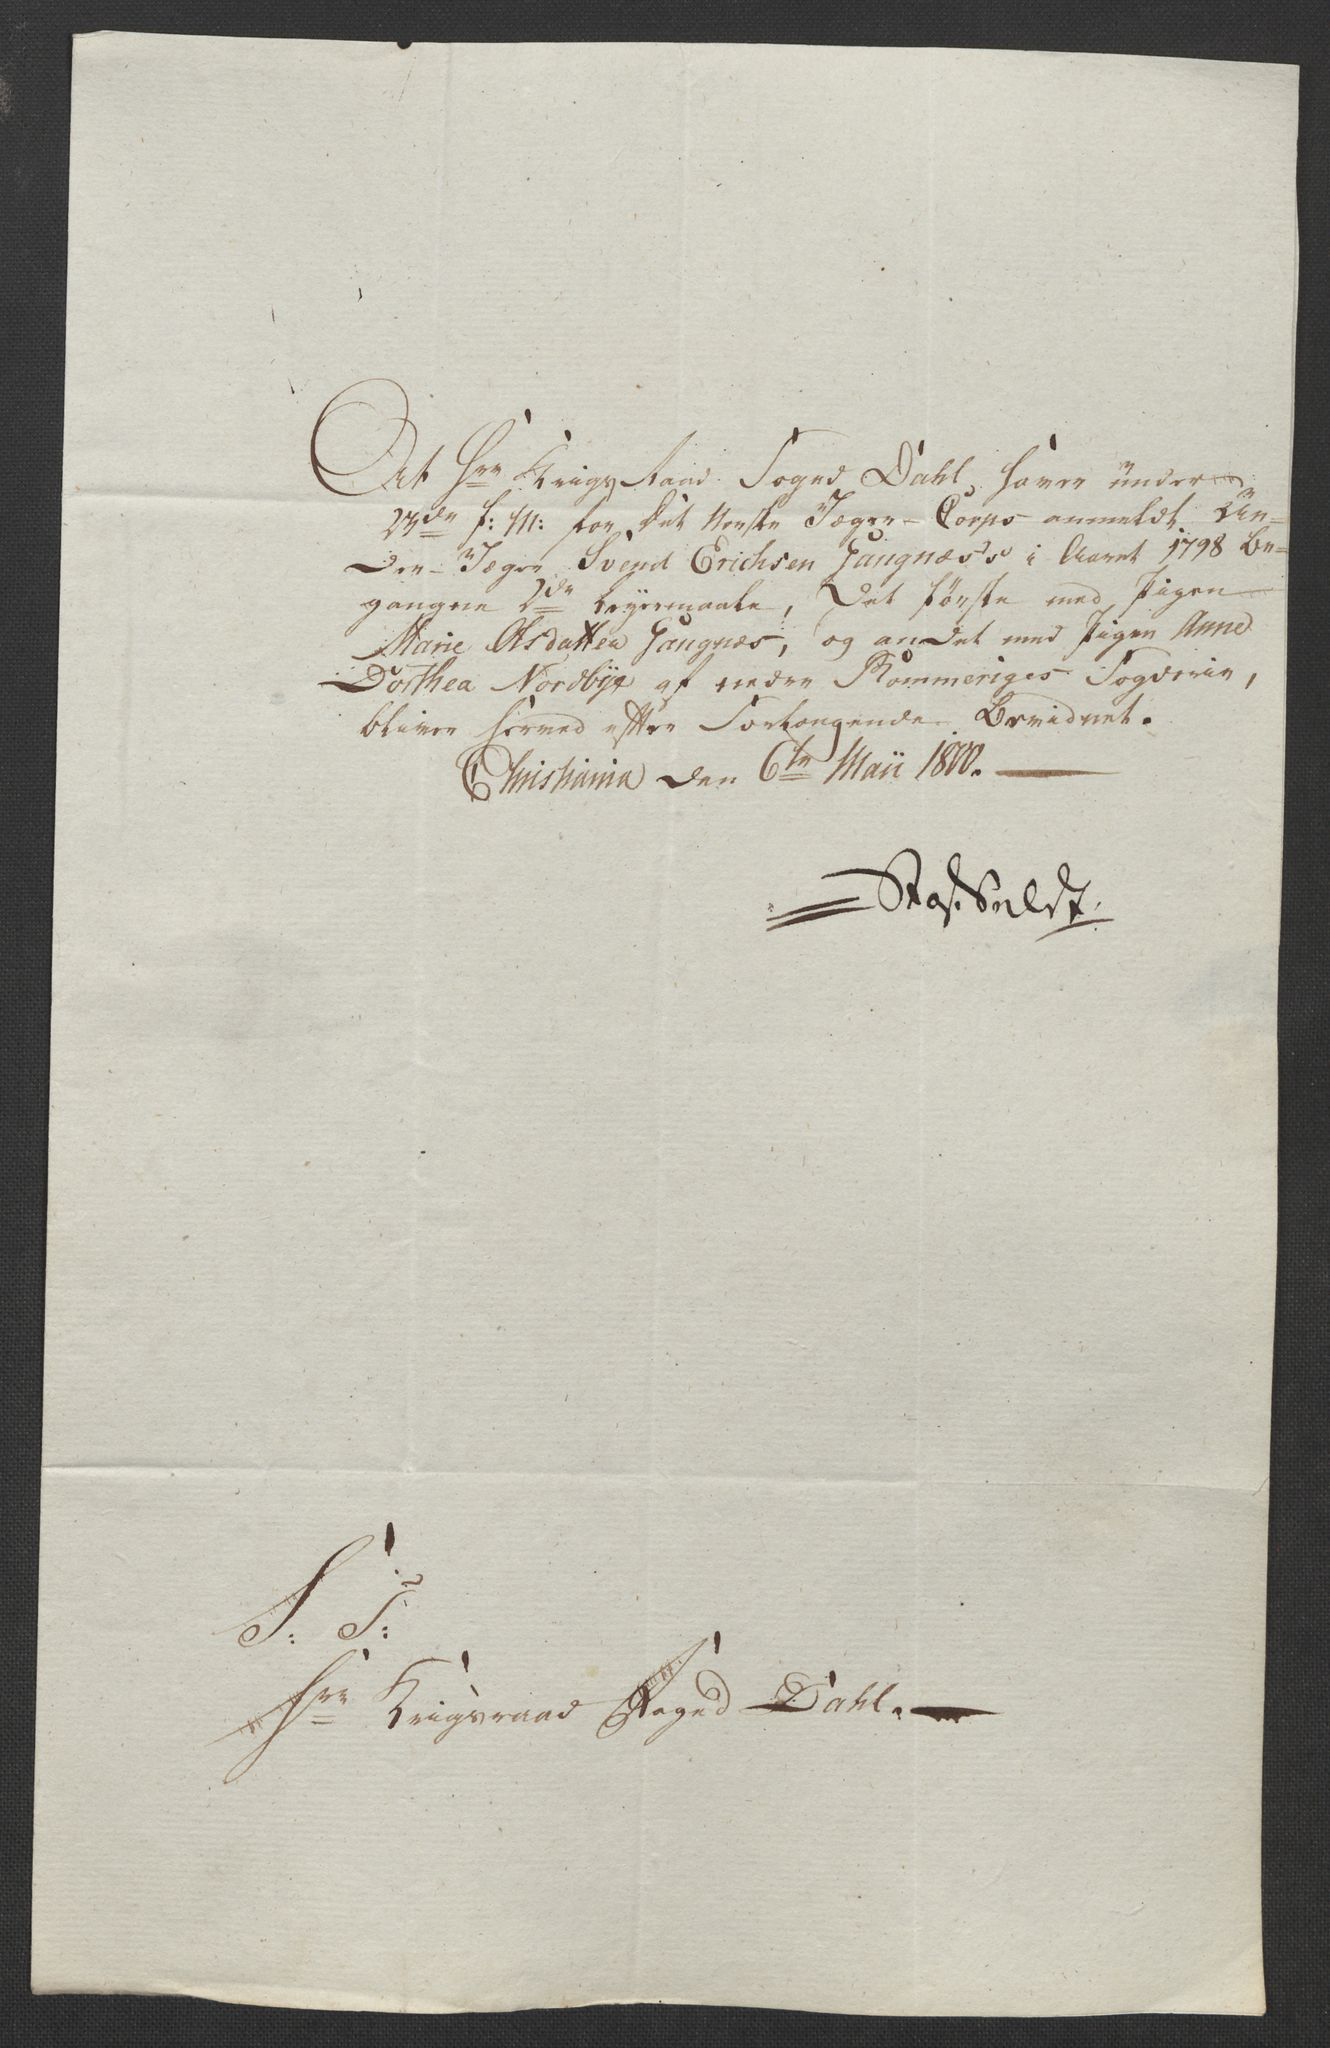 At Hrr Krigs Raad Foged Dahl, haver under
23de f: M: for det Norske Jæger-Corps anmeldt Un-
der-Jæger Svend Erichsen Gangnæs's i Aaret 1798 be-
gangne 2de Leyermaale, det første med Pigen
Marie Olsdatter Gangnæs, og andet med Pigen Anne
Dorthea Nordbye af nedre Rommeriges Fogderie,
bliver herved efter Forlangende Bevidnet.
Christiania den 6te Maii 1800.
S: T:
Hrr Krigsraad Foged Dahl.